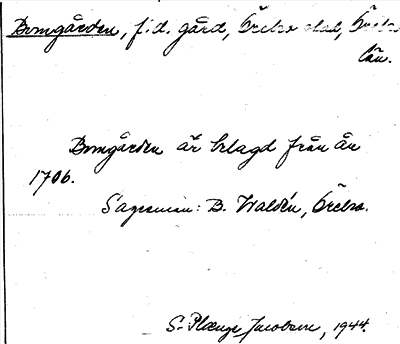 Bomgården, f.d. gård, Örebro stad, Örebro
län.
Bomgården är belagd från år
1706.
Sagesman: B. Waldén, Örebro.
S. Plænge Jacobson, 1944.